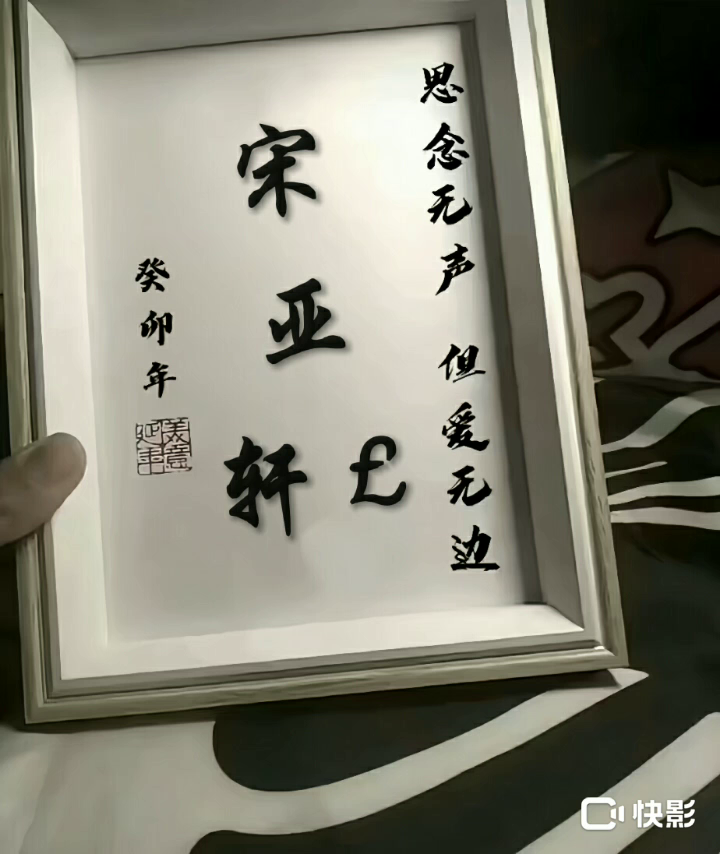 思念无声 但爱无边
宋亚轩
£
癸卯年
延年美意
快影